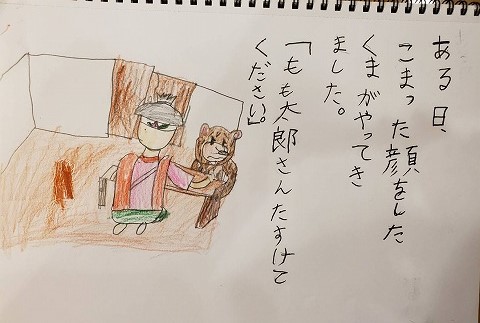 ある日、
こまった顔をした
くまがやってき
ました。
「もも太郎さんたすけて
ください。」